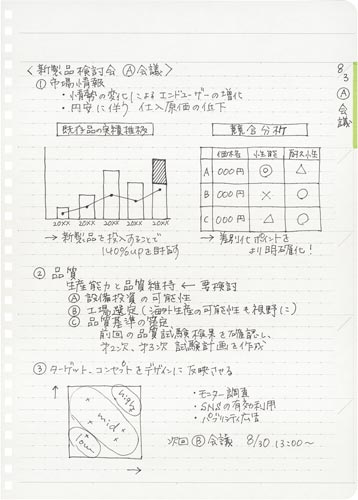 8/3 Ⓐ会議
〈新製品検討会 Ⓐ会議〉
① 市場情報
・情勢の変化によるエンドユーザーの増化
・円安に伴り 仕入原価の低下
既存品の実績推移
競合分析
価格 性能 耐久性
A 000円 ◎ △
B 000円 × ○
C 000円 △ ○
20XX 20XX 20XX 20XX 20XX
→ 新製品を投入することで
140%upを目指す
→ 差別化ポイントを
より明確化!
② 品質
生産能力と品質維持 ← 要検討
Ⓐ 設備投資の可能性
Ⓑ 工場選定(海外生産の可能性も視野に)
Ⓒ 品質基準の策定
前回の品質試験検果を確認し、
第2次、第3次 試験計画を作成
③ ターゲット、コンセプトをデザインに反映させる
high
mid
low
・モニター調査
・SNSの有効利用
・パブリシティ広告
次回 Ⓑ 会議 8/30 13:00〜